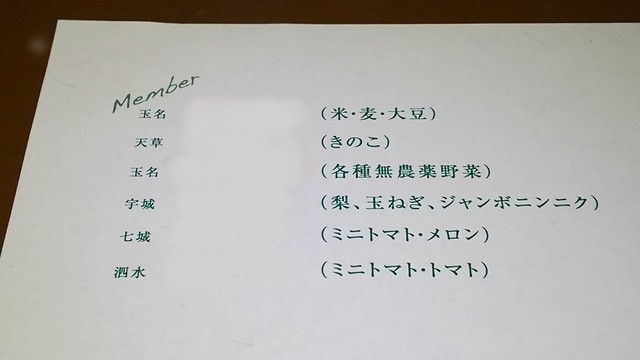 Member
玉名 (米・麦・大豆)
天草 (きのこ)
玉名 (各種無農薬野菜)
宇城 (梨、玉ねぎ、ジャンボニンニク)
七城 (ミニトマト・メロン)
泗水 (ミニトマト・トマト)